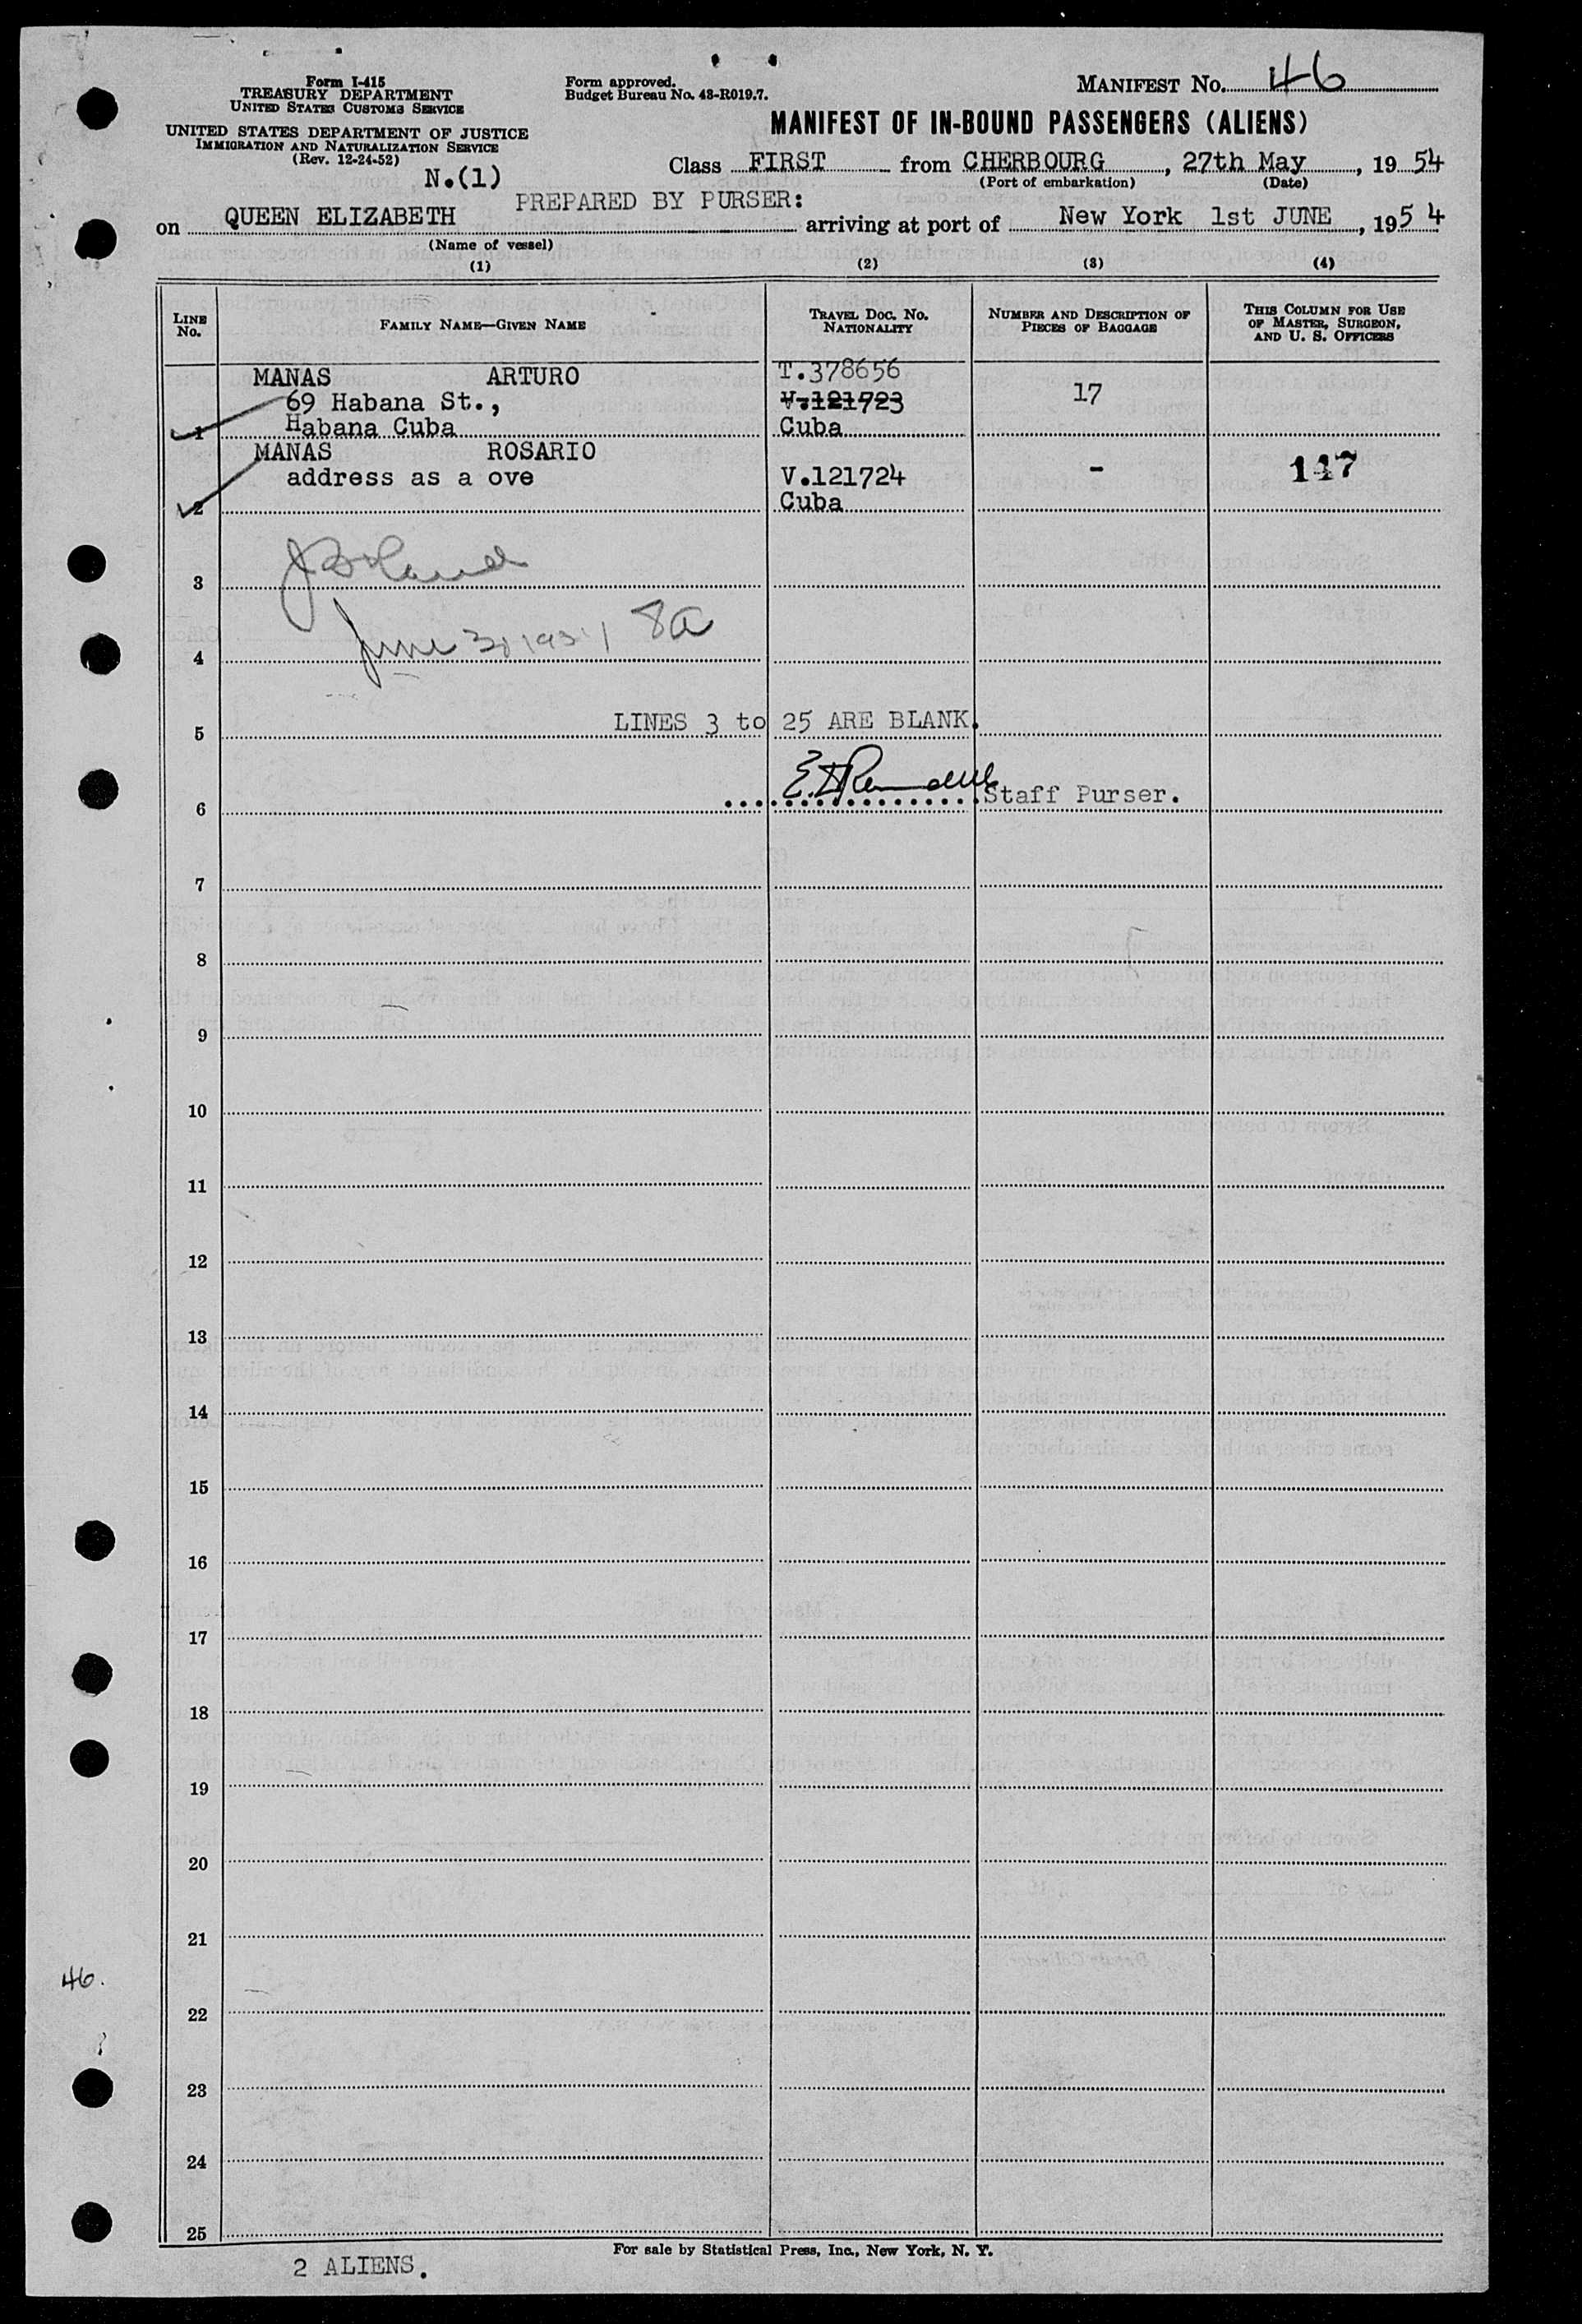 Form I-415
TREASURY DEPARTMENT
UNITED STATES CUSTOMS SERVICE
UNITED STATES DEPARTMENT OF JUSTICE
IMMIGRATION AND NATURALIZATION SERVICE
(Rev. 12-24-52)
N.(1)
Form approved.
Budget Bureau No. 43-R019.7.
MANIFEST NO. 46
MANIFEST OF IN-BOUND PASSENGERS (ALIENS)
Class FIRST from CHERBOURG, 27th May, 19 54
(Port of embarkation) (Date)
PREPARED BY PURSER:
on QUEEN ELIZABETH arriving at port of New York 1st JUNE, 195 4
(Name of vessel)
(1) (2) (3) (4)
LINE No. FAMILY NAME—GIVEN NAME TRAVEL DOC. NO. NATIONALITY NUMBER AND DESCRIPTION OF PIECES OF BAGGAGE THIS COLUMN FOR USE OF MASTER, SURGEON, AND U. S. OFFICERS
MANAS ARTURO T.378656
69 Habana St., V.121723 17
1 Habana Cuba Cuba
MANAS ROSARIO
address as a ove V.121724 - 147
2 Cuba
3
4 June 8a
5 LINES 3 to 25 ARE BLANK.
6 Staff Purser.
7
8
9
10
11
12
13
14
15
16
17
18
19
20
21
46.
22
23
24
25
For sale by Statistical Press, Inc., New York, N. Y.
2 ALIENS.